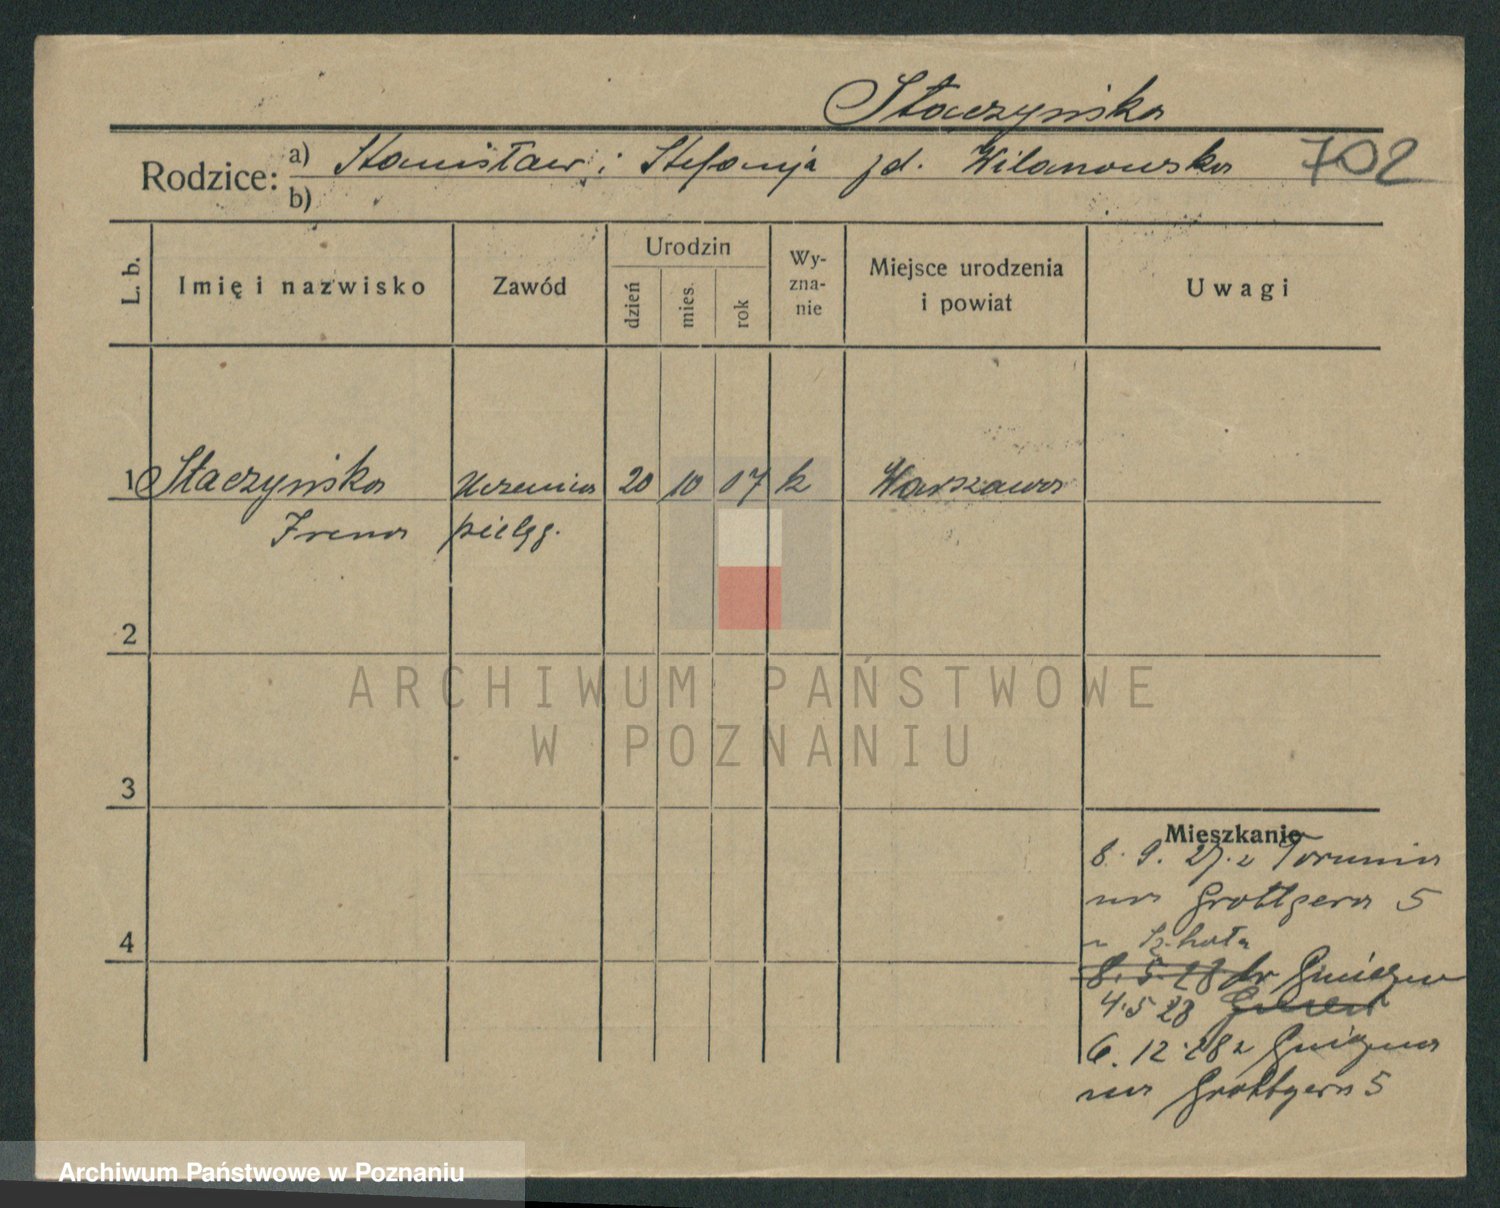 Staczyńska
Rodzice: a) Stanisław i Stefanja zd. Wilanowska 702
b)
L. b. Imię i nazwisko Zawód Urodzin dzień mies. rok Wyznanie Miejsce urodzenia i powiat Uwagi
1 Staczyńska Uczenica 20 10 07 k Warszawa
Irena pielęg.
2
ARCHIWUM PAŃSTWOWE
W POZNANIU
3
Mieszkanie
8. 9. 27. z Torunia
na Grottgera 5
8. 5. 28 do Gniezna
4. 5 28
6. 12. 28 z Gniezna
na Grottgera 5
4
Archiwum Państwowe w Poznaniu